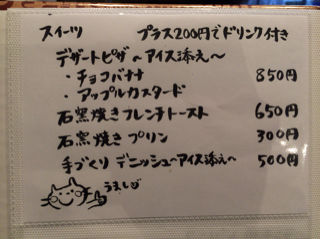 スイーツ プラス200円でドリンク付き
デザートピザ〜アイス添え〜
・チョコバナナ 850円
・アップルカスタード
石窯焼きフレンチトースト 650円
石窯焼きプリン 300円
手づくりデニッシュ〜アイス添え〜 500円